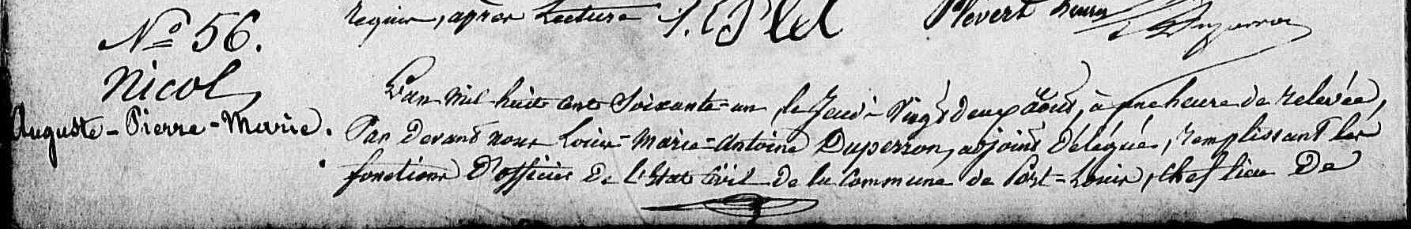 registre, après Lecture S. Plel Plevert Duperron
No 56.
Nicol
Auguste-Pierre-Marie.
L'an mil huit cent soixante-un, le Jeudi Vingt deux août, à une heure de relevée,
Par devant nous Louis-Marie-Antoine Duperron, adjoint délégué, remplissant les
fonctions D'officier De L'Etat Civil De la Commune de Port-Louis, Chef lieu De